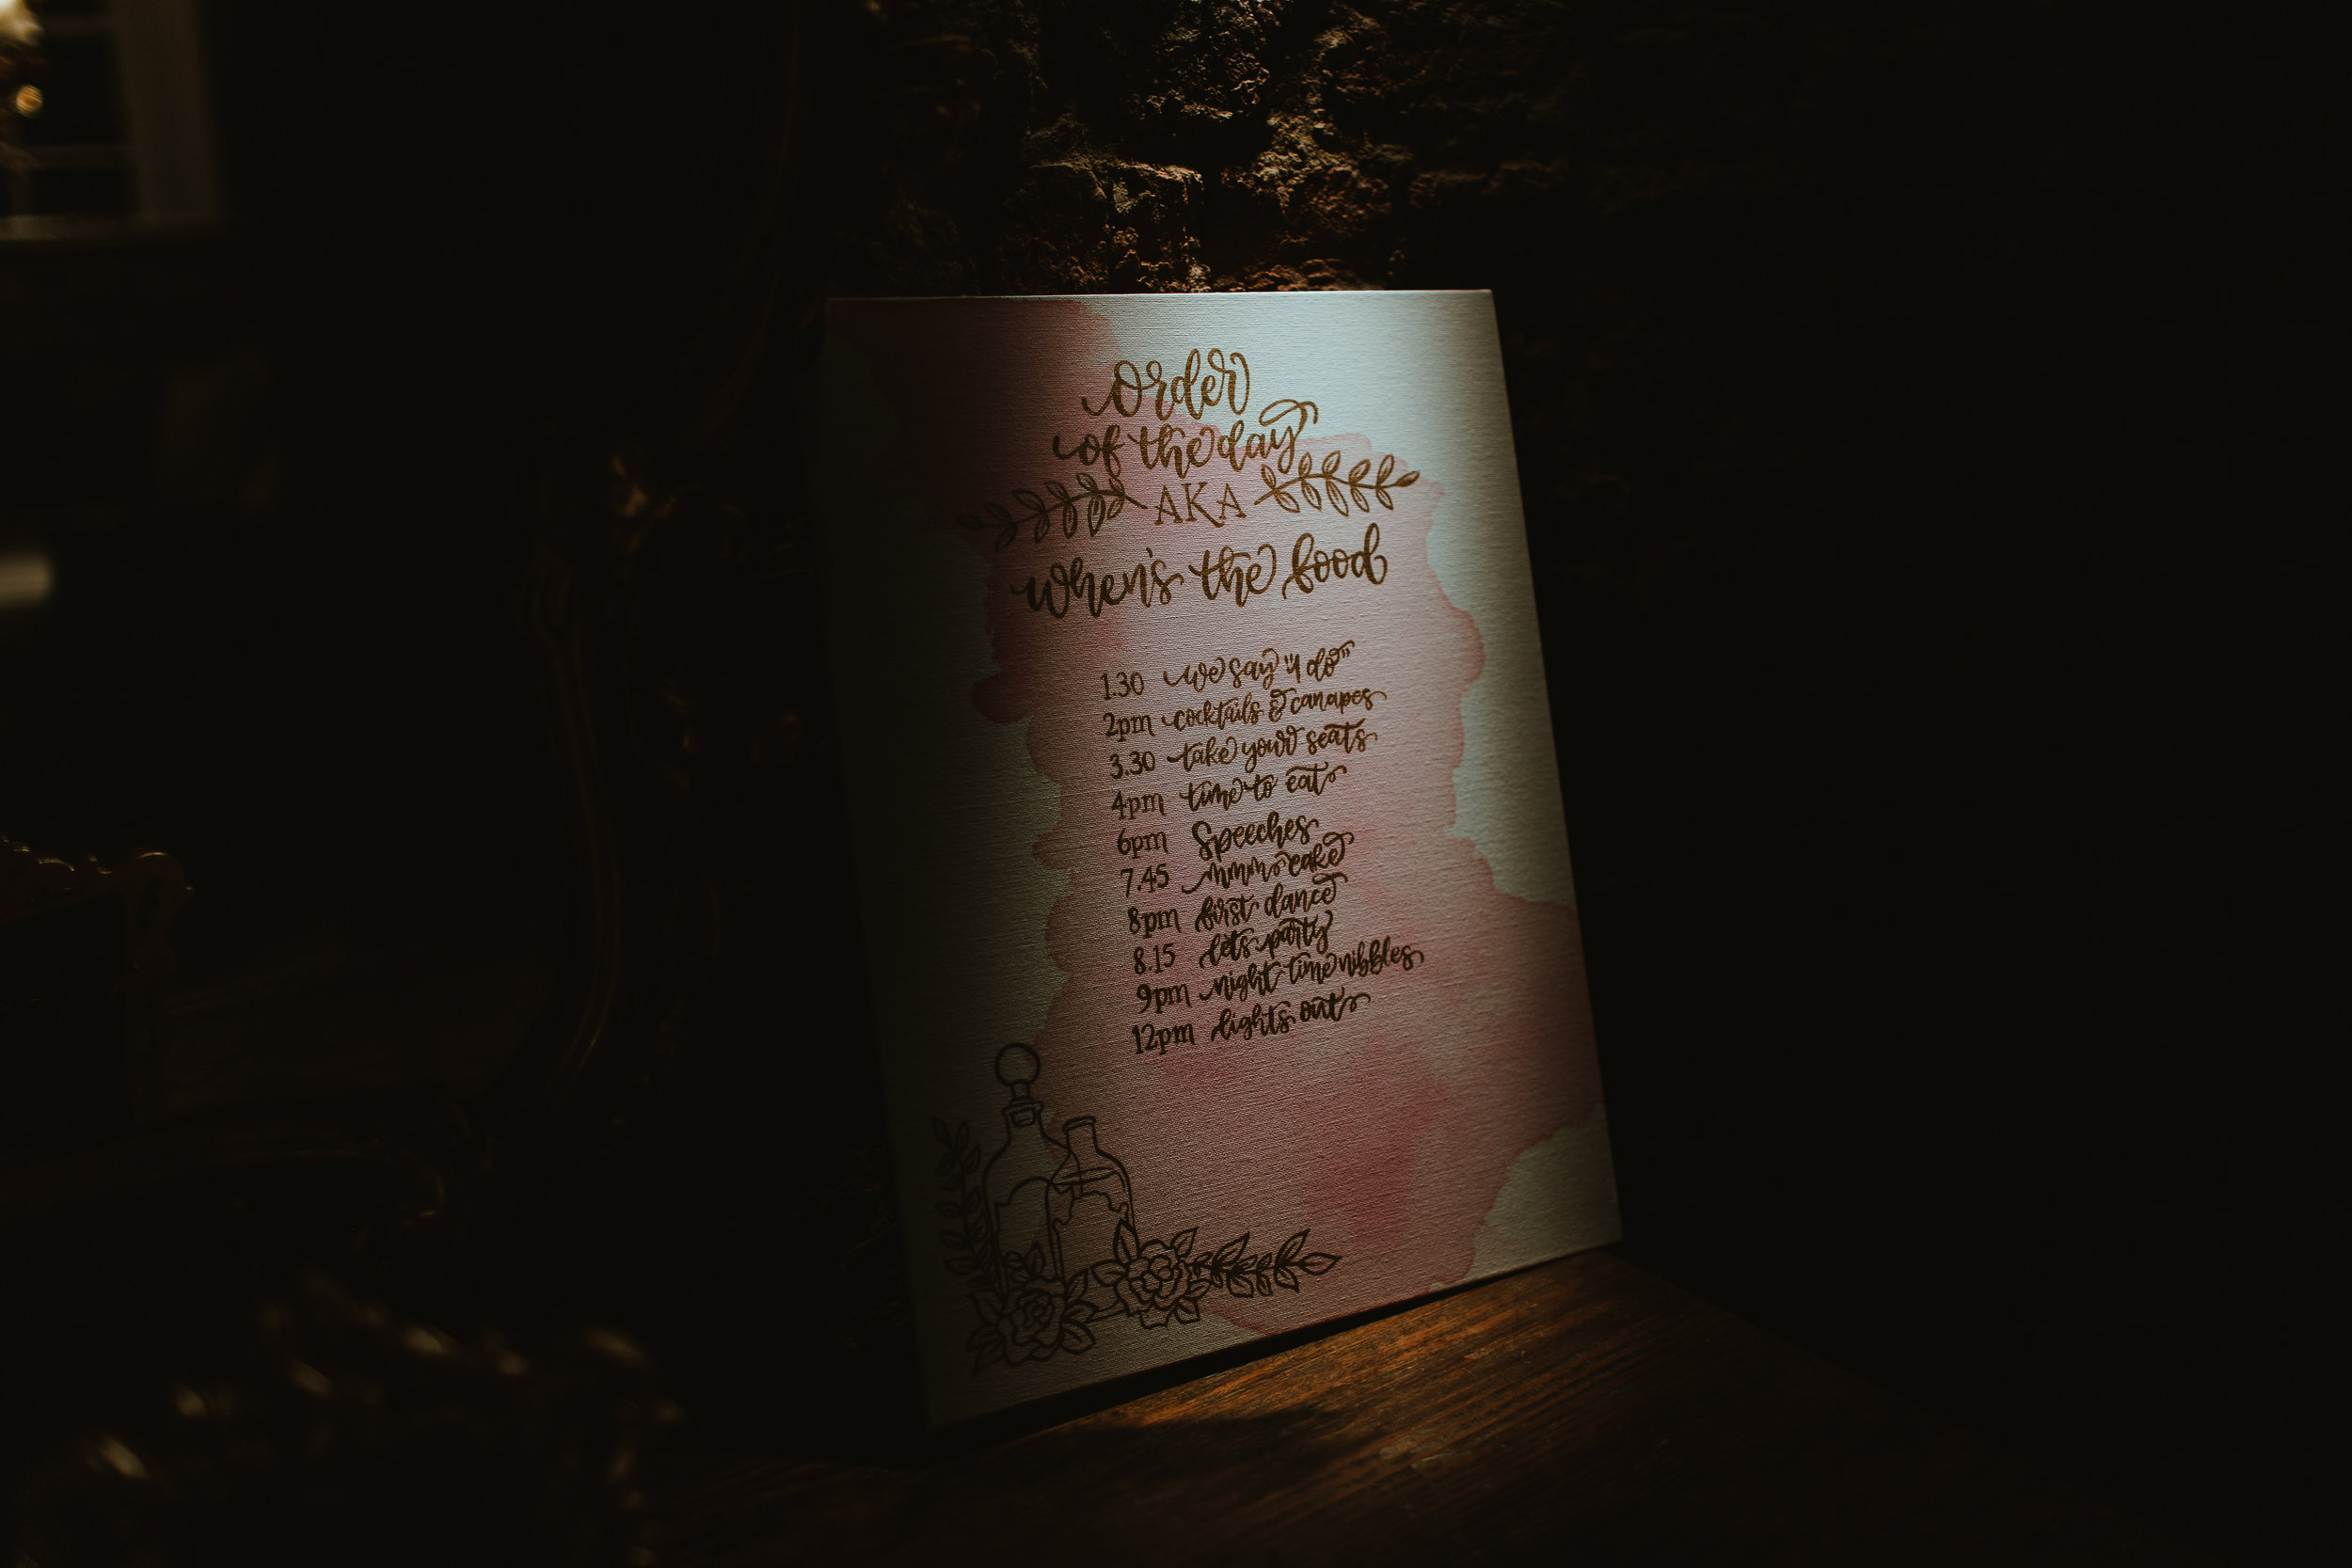 Order
of the day
AKA
when's the food
1.30 we say "I do"
2pm cocktails & canapes
3.30 take your seats
4pm time to eat
6pm Speeches
7.45 mmm cake
8pm first dance
8.15 lets party
9pm night time nibbles
12pm lights out